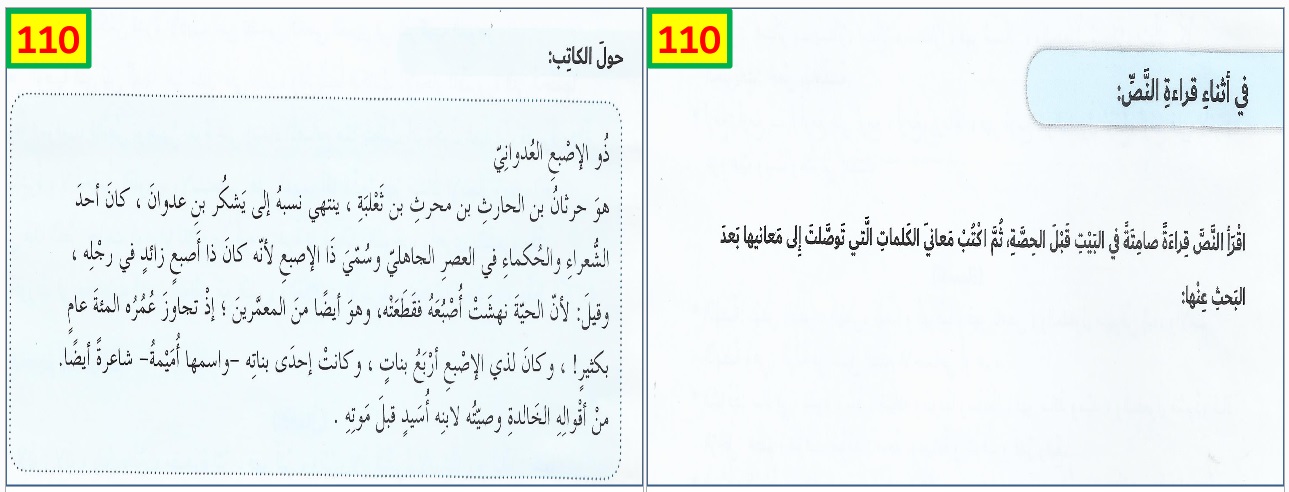 110
في أثناءِ قراءةِ النَّصِّ:
اقْرَأِ النَّصَّ قِراءَةً صامِتَةً في البَيْتِ قَبْلَ الحِصَّةِ، ثُمَّ اكْتُبْ مَعانيَ الكَلماتِ الَّتي تَوصَّلتَ إلى مَعانيها بَعدَ
البَحثِ عِنْها:
110
حولَ الكاتِب:
ذُو الإصْبعِ العُدوانِيّ
هوَ حرثانُ بن الحارثِ بن محرثِ بن ثَعْلبَةِ ، ينتهي نسبهُ إلى يَشكُر بنِ عدوانَ ، كانَ أحدَ
الشُّعراءِ والحُكماءِ في العصرِ الجاهليّ وسُمّيَ ذَا الإصبعِ لأنّه كانَ ذا أَصبعٍ زائدٍ في رجْلِه ،
وقيلَ: لأنّ الحيّةَ نهشَتْ أُصْبُعَهُ فقَطَعَتْه، وهوَ أيضًا منَ المعمَّرينَ ؛ إذْ تجاوزَ عُمُرُه المئةَ عامٍ
بكثيرٍ! ، وكانَ لذي الإصْبعِ أرْبَعُ بناتٍ ، وكانتْ إحدَى بناتِه –واسمها أُمَيْمةُ– شاعرةً أيضًا.
منْ أقْوالِهِ الخَالدةِ وصيّتُه لابنِه أُسَيدٍ قبلَ مَوتِهِ .